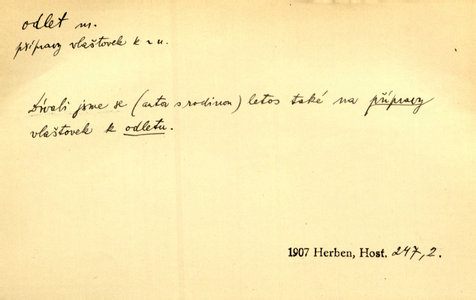 odlet m.
přípravy vlaštovek k ~ u.
Dívali jsme se (auta s rodinou) letos také na přípravy
vlaštovek k odletu.
1907 Herben, Host. 247, 2.